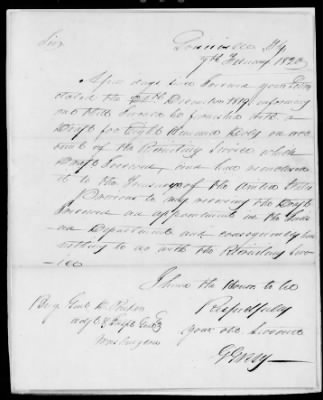 Sir
9th February 1820
A few days since I received your letter
dated the December 1819 informing
me that I would be furnished with a
Draft for Eight Hundred Dolls on acc
ount of the Recruiting Service which
Draft I received and have
it to the Treasurer of the United States
Previous to my receiving the Draft
I received an appointment in the
Department and consequently have
nothing to do with the Recruiting Ser
vice
I have the Honor to be
Respectfully
your obt Servant
Brig Genl D. Parker
adjt & Insp Genl
Washington